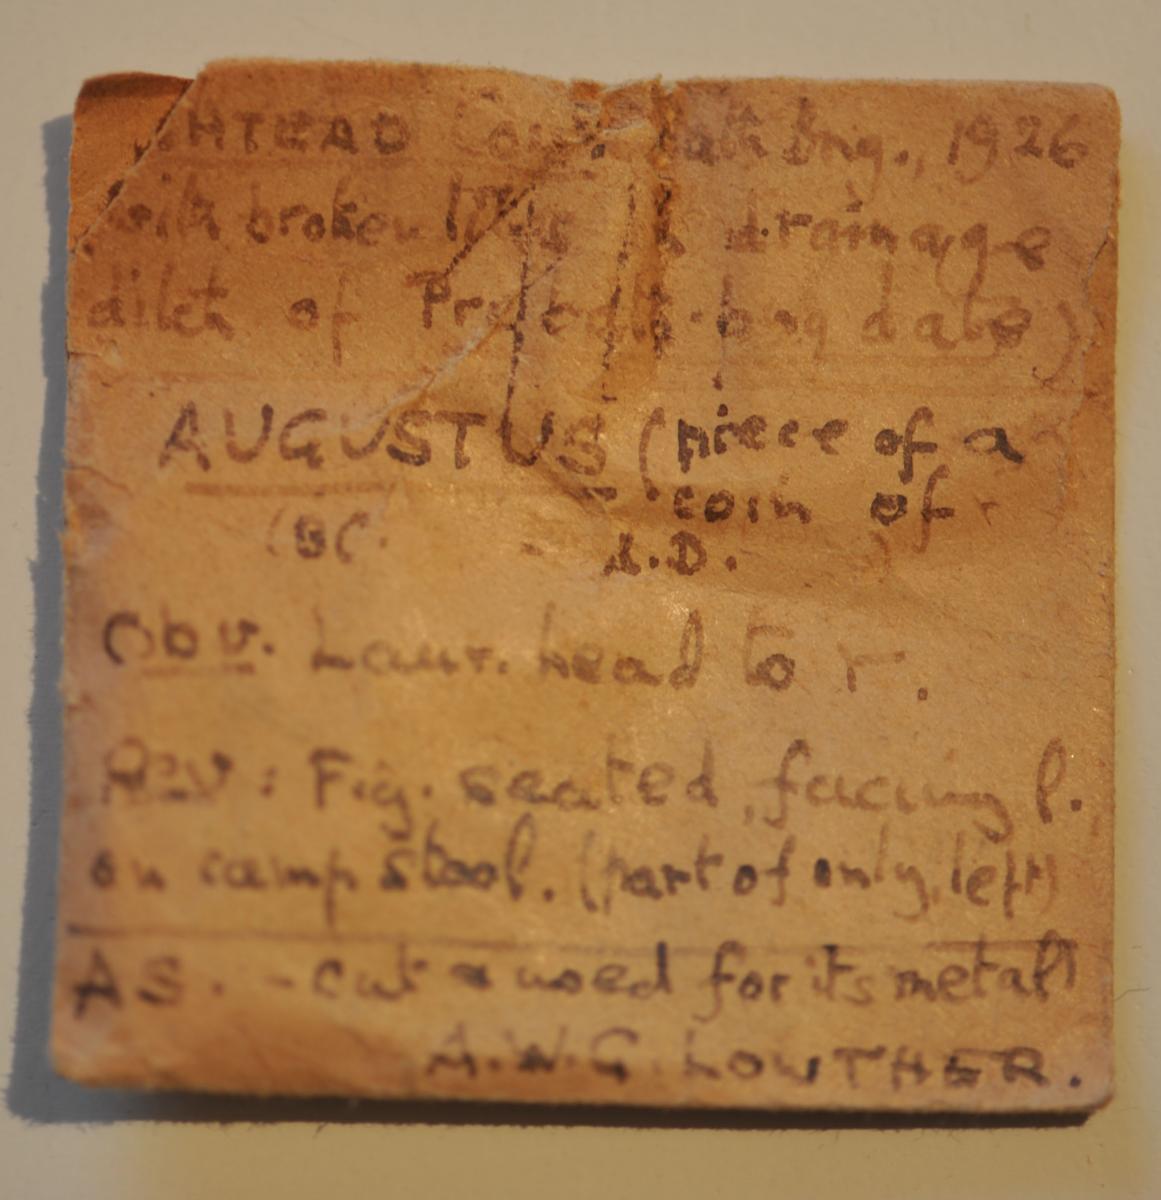 HTEAD Com Bng., 1926
with broken tiles in drainage
ditch of date)
AUGUSTUS (piece of a
coin of
(BC - A.D. )
Obv. Laur. head to r.
Rev: Fig. seated, facing l.
on camp stool. (part of only, left)
AS. - cut & used for its metal
A.W.G. LOWTHER.